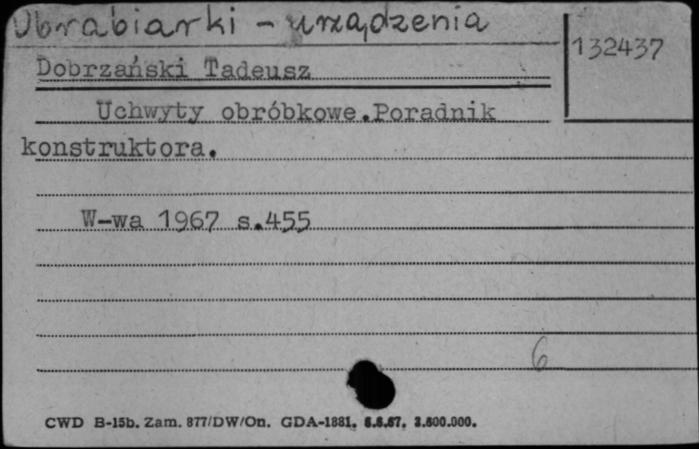 Obrabiarki - urządzenia
132437
Dobrzański Tadeusz
Uchwyty obróbkowe.Poradnik
konstruktora.
W-wa 1967 s.455
6
CWD B-15b. Zam. 877/DW/On. GDA-1881. 6.6.67. 3.600.000.